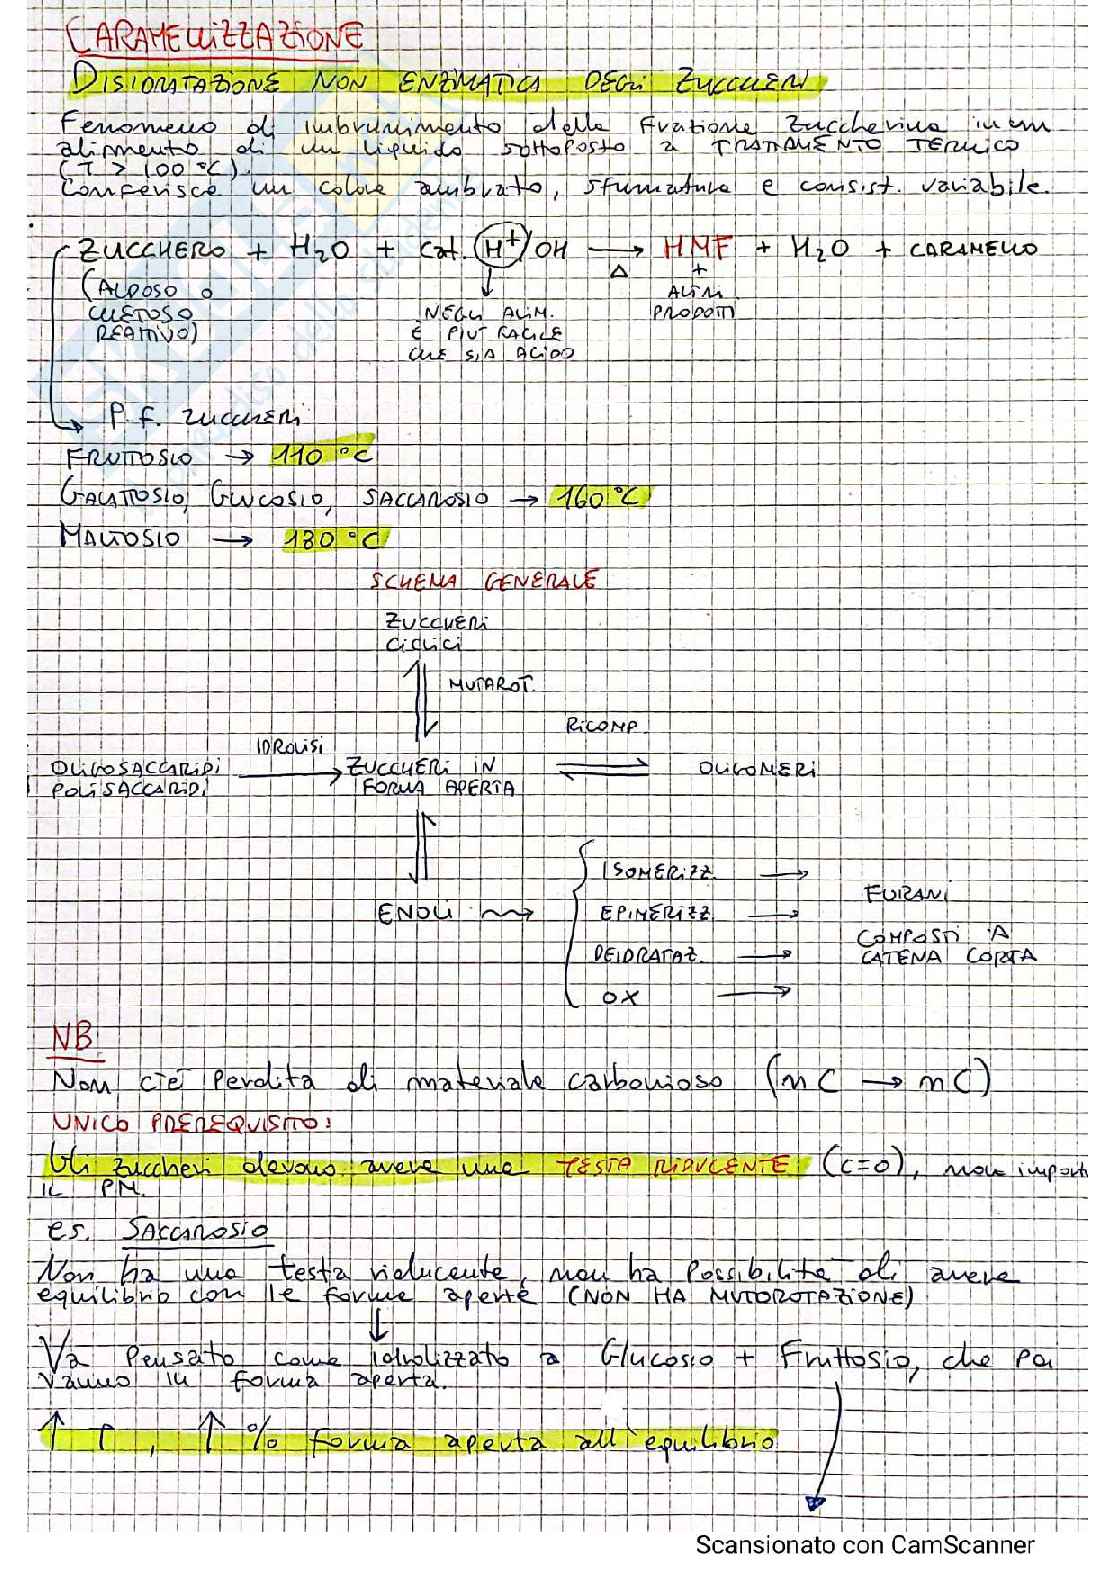 CARAMELLIZZAZIONE
DISIDRATAZIONE NON ENZIMATICA DEGLI ZUCCHERI
Fenomeno di imbrunimento della frazione zuccherina in un
alimento di un liquido sottoposto a TRATTAMENTO TERMICO
(T > 100 °C).
Conferisce un colore ambrato, sfumature e consist. variabile.
ZUCCHERO + H2O + cat. (H+)/OH → HMF + H2O + CARAMELLO
Δ
(ALDOSO O
CHETOSO
REATTIVO)
NEGLI ALIM.
E' PIU' FACILE
CHE SIA ACIDO
+
ALTRI
PRODOTTI
P.f. ZUCCHERI
FRUTTOSIO → 110 °C
GALATTOSIO, GLUCOSIO, SACCAROSIO → 160 °C
MALTOSIO → 180 °C
SCHEMA GENERALE
ZUCCHERI
CICLICI
MUTAROT.
RICOMP.
IDROLISI
OLIGOSACCARIDI
POLISACCARIDI
ZUCCHERI IN
FORMA APERTA
OLIGOMERI
ENOLI
ISOMERIZZ. →
EPIMERIZZ →
DEIDRATAZ. →
OX →
FURANI
COMPOSTI A
CATENA CORTA
NB.
Non c'è perdita di materiale carbonioso (nC → nC)
UNICO PREREQUISITO:
Gli zuccheri devono avere una TESTA RIDUCENTE (C=O), non import
IL PM.
es. SACCAROSIO
Non ha una testa riducente, non ha possibilità di avere
equilibrio con le forme aperte (NON HA MUTOROTAZIONE)
↓
Va pensato come idrolizzato a Glucosio + Fruttosio, che poi
vanno in forma aperta.
↑ T, ↑ % forma aperta all'equilibrio
Scansionato con CamScanner